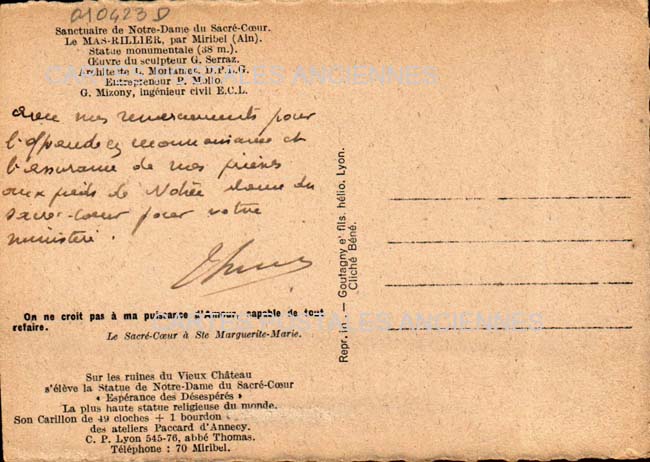 010423D
Sanctuaire de Notre-Dame du Sacré-Cœur.
Le MAS-RILLIER, par Miribel (Ain).
Statue monumentale (38 m.).
Œuvre du sculpteur G. Serraz.
CARTES POSTALES ANCIENNES
Architecte L. Mortamet, D.P.L.G.
Entrepreneur P. Mollo.
G. Mizony, ingénieur civil E.C.L.
avec mes remerciements pour
l'offrande, ma reconnaissance et
l'assurance de mes prières
aux pieds de Notre Dame du
sacré-cœur pour votre
ministère.
On ne croit pas à ma puissance d'Amour, capable de tout
refaire.
CARTES POSTALES ANCIENNES
Le Sacré-Cœur à Ste Marguerite-Marie.
Sur les ruines du Vieux Château
s'élève la Statue de Notre-Dame du Sacré-Cœur
« Espérance des Désespérés »
La plus haute statue religieuse du monde.
Son Carillon de 49 cloches + 1 bourdon
des ateliers Paccard d'Annecy.
C. P. Lyon 545-76, abbé Thomas.
Téléphone : 70 Miribel.
Repr. int. — Goutagny et fils, hélio, Lyon.
Cliché Béné.